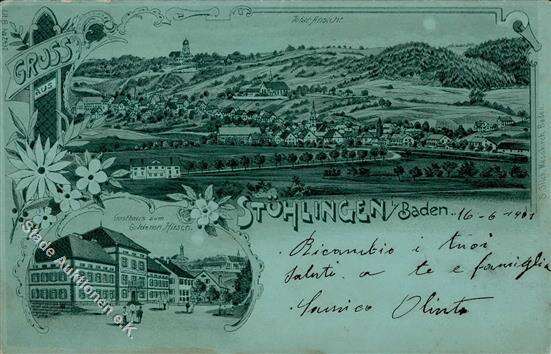 Total-Ansicht
GRUSS
AUS
Gasthaus zum
Goldenen Hirsch.
STÜHLINGEN i/ Baden.
16-6 1901
Ricambio i tuoi
saluti a te e famiglia
Olinto
Stade Auktionen e.K.